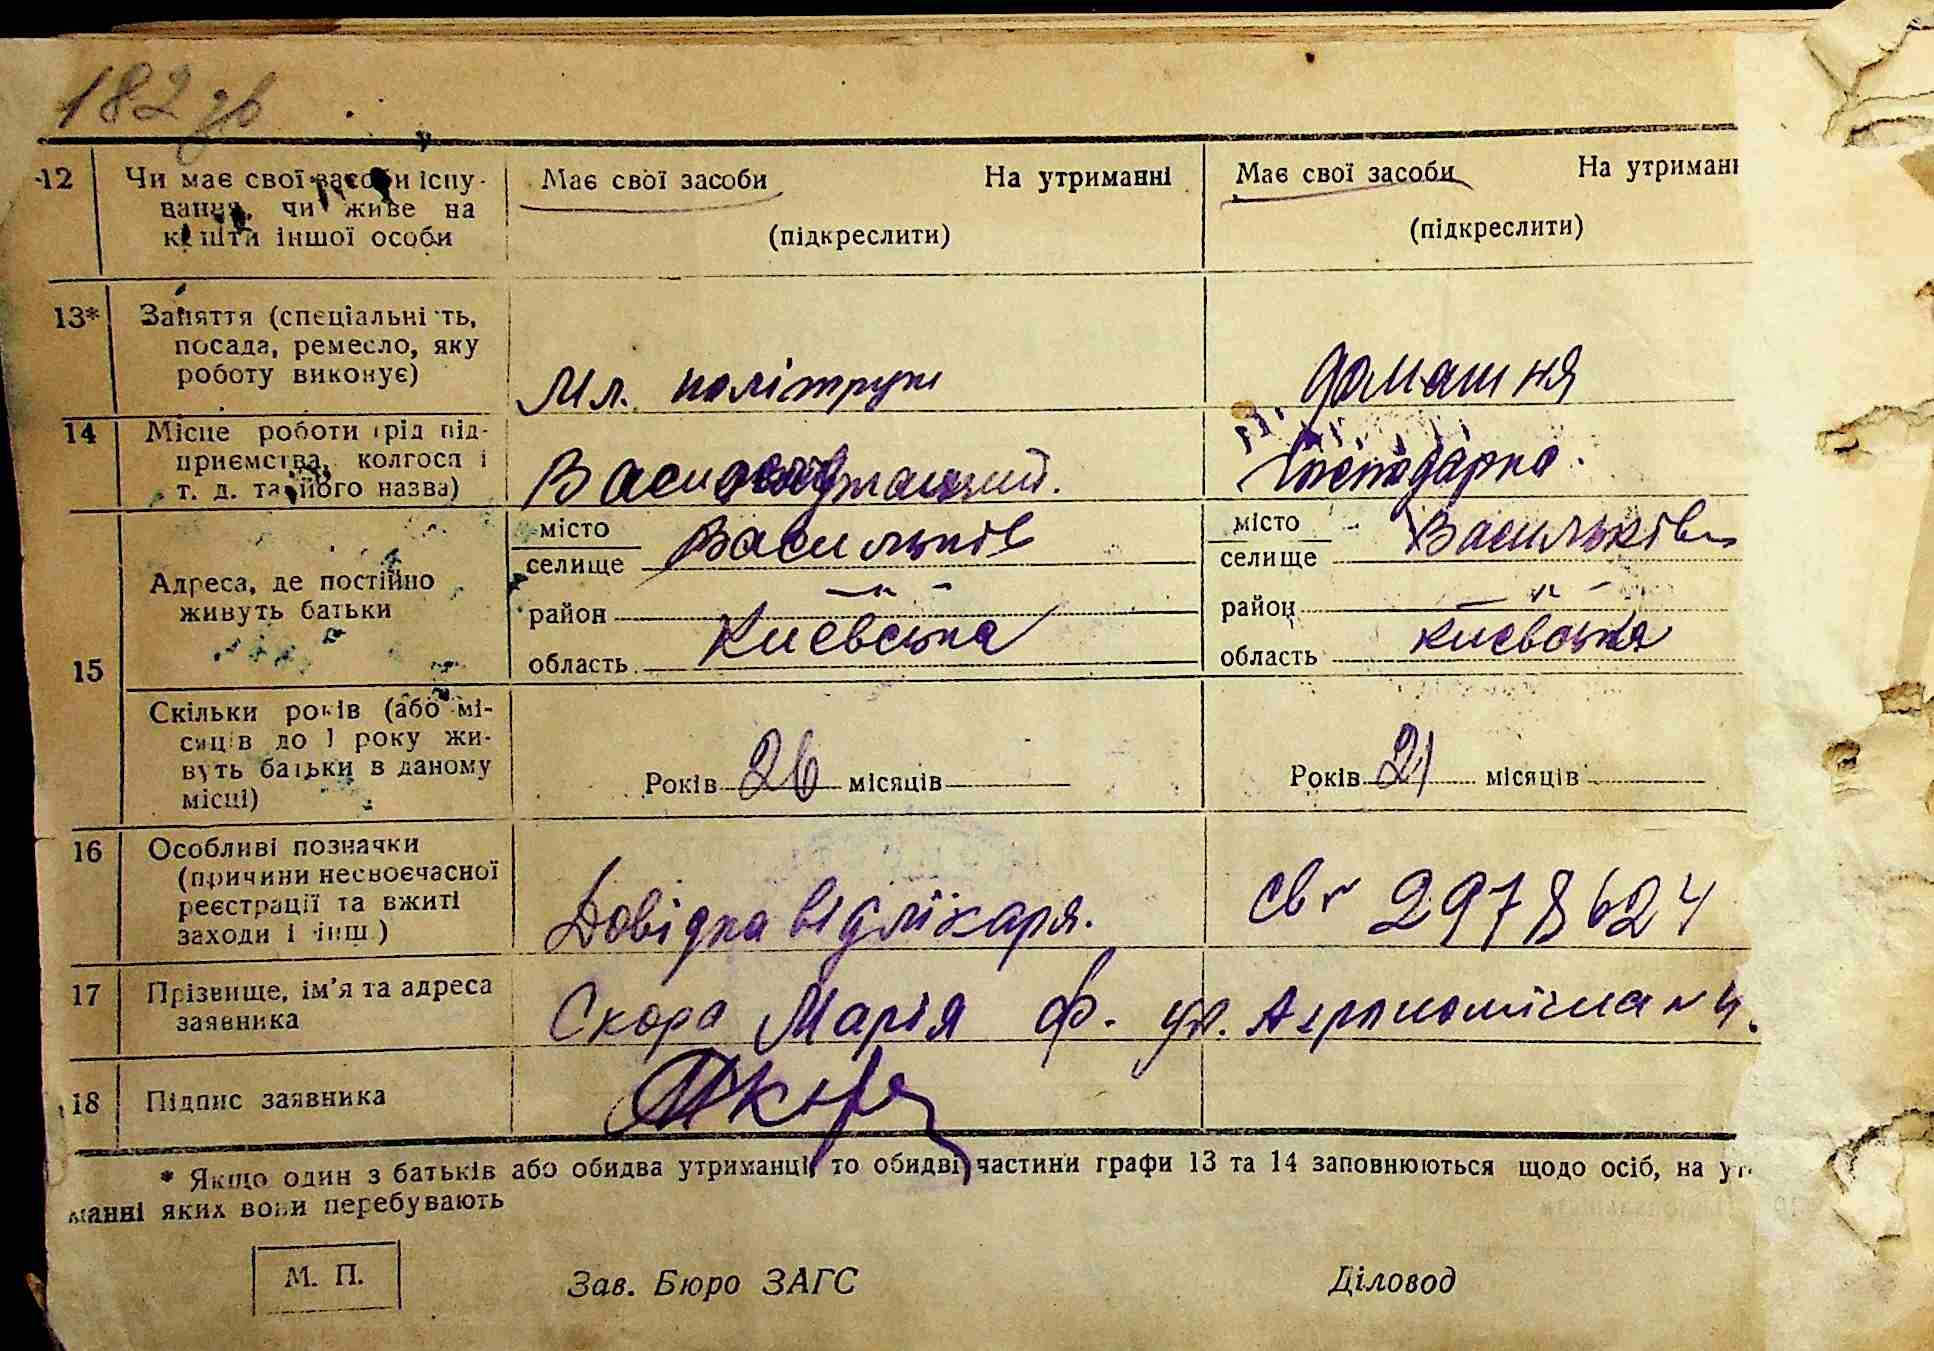 182 зв
12 Чи має свої засоби існу-
вання, чи живе на
кошти іншої особи
Має свої засоби На утриманні
(підкреслити)
Має свої засоби На утриманн
(підкреслити)
13* Заняття (спеціальність,
посада, ремесло, яку
роботу виконує)
Мл. політрук
домашня
14 Місце роботи (рід під-
приємства, колгосп і
т. д. та його назва)
Господарка.
15 Адреса, де постійно
живуть батьки
місто
селище Васильків
район —"—
область Київська
місто
селище Васильків
район —"—
область Київська
Скільки років (або мі-
сяців до 1 року жи-
вуть батьки в даному
місці)
Років 26 місяців
Років 21 місяців
16 Особливі позначки
(причини несвоєчасної
реєстрації та вжиті
заходи і інш.)
Довідка від лікаря.
2978624
17 Прізвище, ім'я та адреса
заявника
Скора Марія Ф. ул. Агрономічна № 4.
18 Підпис заявника
* Якщо один з батьків або обидва утриманці, то обидві частини графи 13 та 14 заповнюються щодо осіб, на ут
манні яких вони перебувають
М. П. Зав. Бюро ЗАГС Діловод